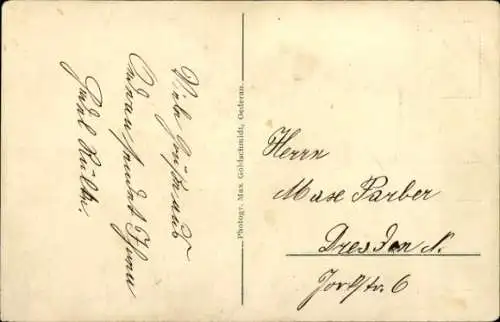 Viele Grüße aus
Oederan sendet Ihnen
Photogr. Max Goldschmidt, Oederan.
Herrn
Max Farber
Dresden N.